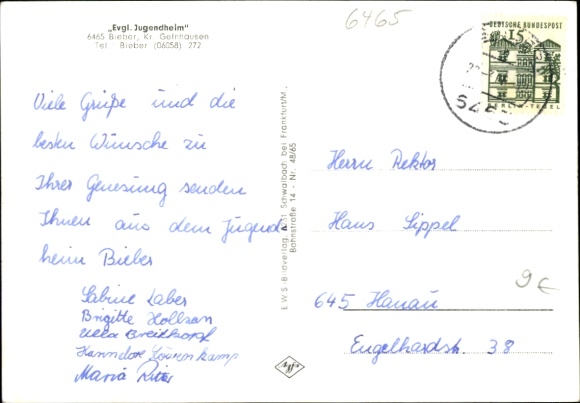 „Evgl. Jugendheim"
6465 Bieber, Kr. Gelnhausen
Tel.: Bieber (06058) 272
6465
DEUTSCHE BUNDESPOST
15
BERLIN-TEGEL
Viele Grüße und die
besten Wünsche zu
Ihrer Genesung senden
Ihnen aus dem Jugend
heim Bieber
Sabine Laber
Brigitte
Ulla Breitkopf
Hannelore
Maria Ritter
E.W.S. Bildverlag, 6231 Schwalbach bei Frankfurt/M.,
Bahnstraße 14 - Nr. 48/65
Herrn Rektor
Hans Sippel
645 Hanau
Engelhardstr. 38
9 €